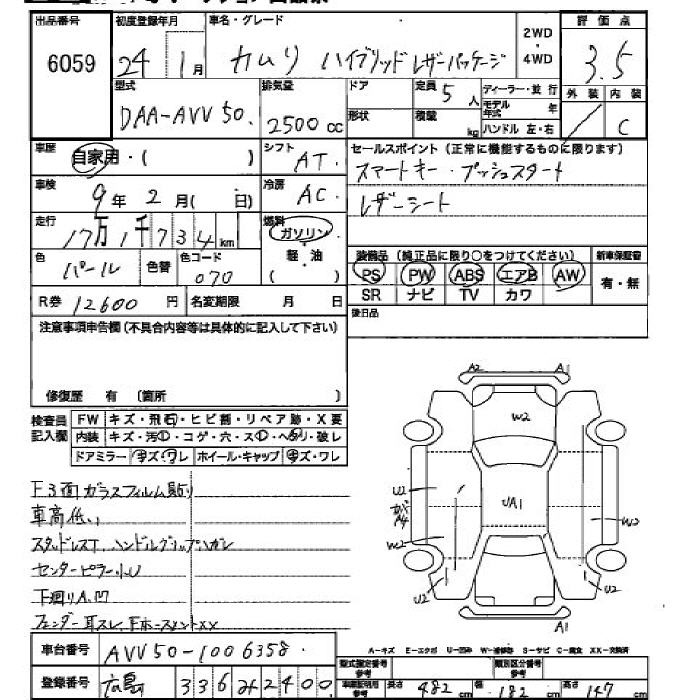 出品番号 初度登録年月 車名・グレード 2WD・4WD 評価点
6059 24 1月 カムリ ハイブリッド レザーパッケージ 3.5
型式 排気量 ドア 定員 ディーラー・並行 外装 内装
DAA-AVV50. 2500cc 5人 モデル年式 年 C
形状 積載 kg ハンドル 左・右
車歴 自家用・( ) シフト AT. セールスポイント(正常に機能するものに限ります)
車検 9年2月( 日) 冷房 AC. スマートキー・プッシュスタート
レザーシート
走行 17万1千734km 燃料 ガソリン・軽・油( )
色 パール 色替 色コード 070
装備品(純正品に限り○をつけてください) 新車保証書
PS PW ABS エアB AW 有・無
SR ナビ TV カワ
R券 12600円 名変期限 月 日 後日品
注意事項申告欄(不具合内容等は具体的に記入して下さい)
修復歴 有 〔箇所 〕
検査員記入欄 FW キズ・飛石・ヒビ割・リペア跡・X要
内装 キズ・汚・コゲ・穴・ス・ヘタリ・破レ
ドアミラー キズ・ワレ ホイール・キャップ キズ・ワレ
F3面ガラスフィルム貼り
車高低い
スタッドレスT、ハンドルグリップハガレ
センターピラー小U
下廻りA.凹
A2 A1
W2
U2 UA1
W2 W2
U2 U2
A1
A-キズ E-エクボ U-凹み W-補修跡 S-サビ C-腐食 XX-交換済
車台番号 AVV50-1006358.
型式指定番号 類別区分番号
登録番号 広島 336 み 2400
車庫証明用参考 長さ 482cm 幅 182cm 高さ 147cm